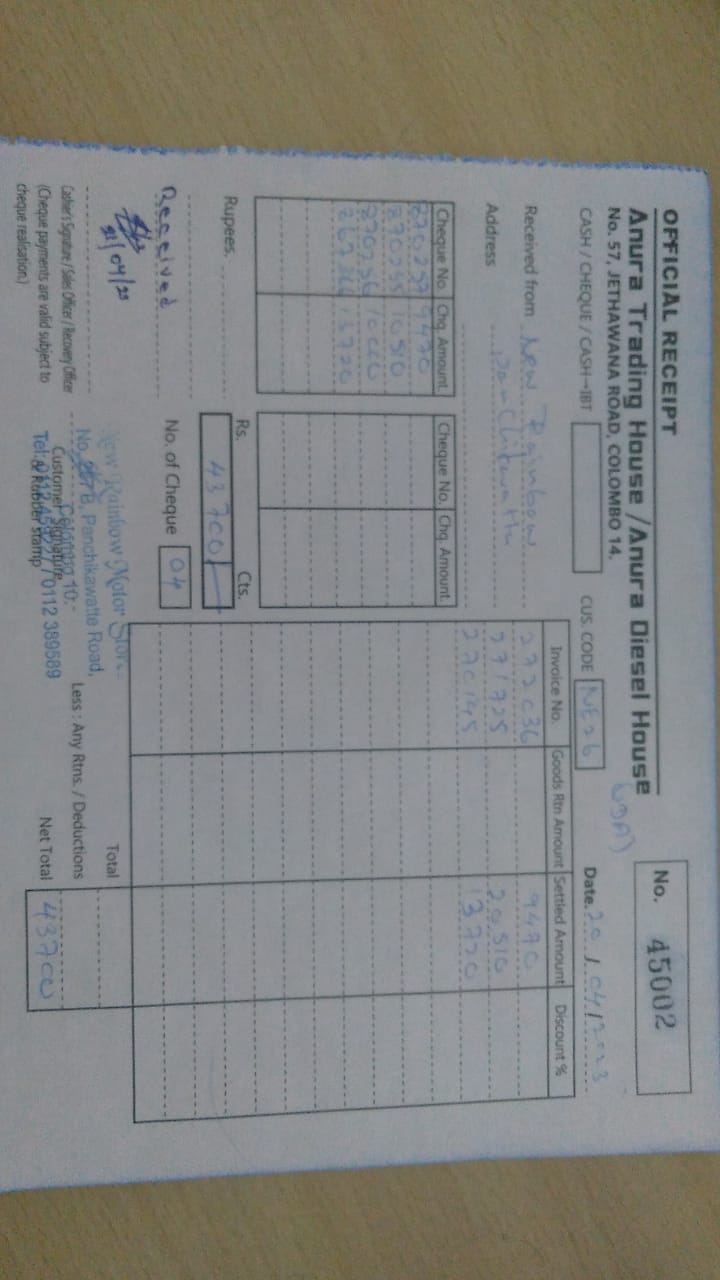 OFFICIAL RECEIPT
No. 45002
Anura Trading House / Anura Diesel House
No. 57, JETHAWANA ROAD, COLOMBO 14.
CASH / CHEQUE / CASH-IBT
CUS. CODE NE26
Date. 20 / 04 / 2023
Received from New Rainbow
Address Panchikawatta
Cheque No. Chq. Amount. Cheque No. Chq. Amount.
270257 9470
270255 10510
270256 10000
13720
Invoice No. Goods Rtn Amount Settled Amount Discount %
272036 9470
271725 20510
270195 13720
Rupees.
Rs. Cts.
43700/-
Received
No. of Cheque 04
21/04/23
Total
Less : Any Rtns. / Deductions
Net Total 43700
Cashier's Signature / Sales Officer / Recovery Officer
(Cheque payments are valid subject to
cheque realisation.)
Customer Signature
& Rubber stamp
New Rainbow Motor Store
Panchikawatte Road,
Colombo 10.
/ 0112 389589